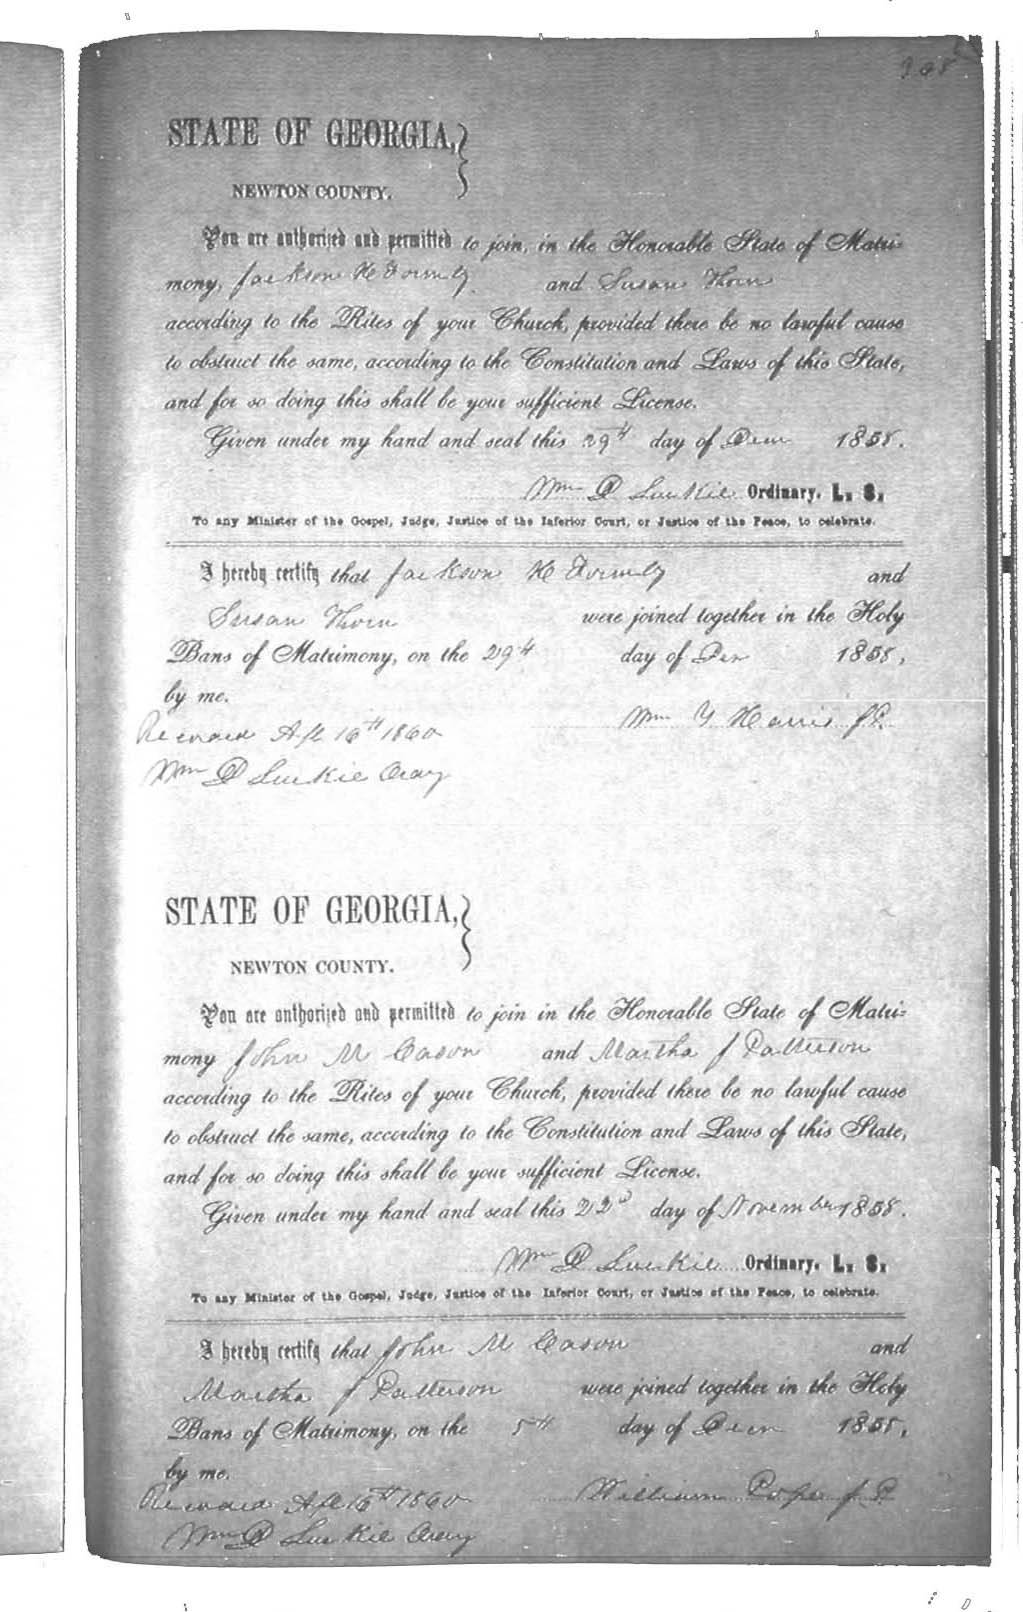 STATE OF GEORGIA,
NEWTON COUNTY.
You are authorized and permitted to join, in the Honorable State of Matri-
mony, Jackson H Formby and Susan Thorn
according to the Rites of your Church, provided there be no lawful cause
to obstruct the same, according to the Constitution and Laws of this State,
and for so doing this shall be your sufficient License.
Given under my hand and seal this 29th day of Decm 1858.
Wm D Luckie Ordinary. L. S.
To any Minister of the Gospel, Judge, Justice of the Inferior Court, or Justice of the Peace, to celebrate.
I hereby certify that Jackson H Formby and
Susan Thorn were joined together in the Holy
Bans of Matrimony, on the 29th day of Dec 1858,
by me.
Wm Y Harris J.P.
Recorded Apl 16th 1860
Wm D Luckie Ordy
STATE OF GEORGIA,
NEWTON COUNTY.
You are authorized and permitted to join in the Honorable State of Matri-
mony John M Cason and Martha J Patterson
according to the Rites of your Church, provided there be no lawful cause
to obstruct the same, according to the Constitution and Laws of this State,
and for so doing this shall be your sufficient License.
Given under my hand and seal this 22d day of November 1858.
Wm D Luckie Ordinary. L. S.
To any Minister of the Gospel, Judge, Justice of the Inferior Court, or Justice of the Peace, to celebrate.
I hereby certify that John M Cason and
Martha J Patterson were joined together in the Holy
Bans of Matrimony, on the 5th day of Decm 1858,
by me.
William Pope J P
Recorded Apl 16th 1860
Wm D Luckie Ordy